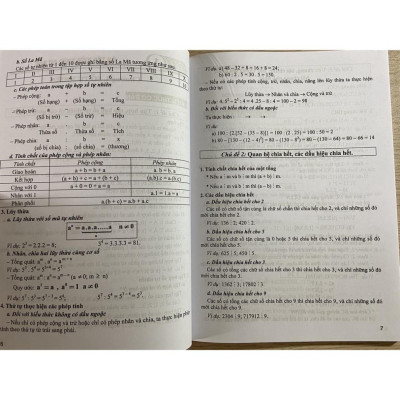 b. Số La Mã
Các số tự nhiên từ 1 đến 10 được ghi bằng số La Mã tương ứng như sau
I II III IV V VI VII VIII IX X
1 2 3 4 5 6 7 8 9 10
c. Các phép toán trong tập hợp số tự nhiên
– Phép cộng: a + b = c
(Số hạng) + (Số hạng) = Tổng
– Phép trừ: a - b = c
(Số bị trừ) - (Số trừ) = (Hiệu)
– Phép nhân: a . b = c
Thừa số . Thừa số = Tích
– Phép chia a : b = c
(số bị chia) : (số chia) = (thương)
d. Tính chất của phép cộng và phép nhân:
Tính chất Phép cộng Phép nhân
Giao hoán a + b = b + a a. b = b. a
Kết hợp (a + b) + c = a + (b + c) (a.b).c = a.(b.c)
Cộng với 0 a + 0 = 0 + a = a
Nhân với 1 a.1 = 1.a = a
Phân phối a.(b + c) = a.b + a.c
3. Lũy thừa
a. Lũy thừa với số mũ tự nhiên
aⁿ = a.a.a.....a n ≠ 0
n
Ví dụ: 2³ = 2.2.2 = 8; 3⁴ = 3.3.3.3 = 81.
b. Nhân, chia hai lũy thừa cùng cơ số
– Tổng quát: aᵐ . aⁿ = aᵐ⁺ⁿ
– Tổng quát: aᵐ : aⁿ = aᵐ⁻ⁿ (a ≠ 0; m ≥ n)
Quy ước: a¹ = a , a⁰ = 1 a ≠ 0
4. Thứ tự thực hiện các phép tính
a. Đối với biểu thức không có dấu ngoặc
– Nếu chỉ có phép cộng và trừ hoặc chỉ có phép nhân và chia, ta thực hiện phép
tính theo thứ tự từ trái sang phải.
6
Ví dụ: a) 48 – 32 + 8 = 16 + 8 = 24;
b) 60 : 2 . 5 = 30 . 5 = 150.
– Nếu có các phép tính cộng, trừ, nhân, chia, nâng lên lũy thừa ta thực hiện
theo thứ tự:
Lũy thừa → Nhân và chia → Cộng và trừ
b. Đối với biểu thức có dấu ngoặc
Ta thực hiện: → →
Ví dụ:
a) 100 : {2.[52 – (35 – 8)]} = 100 : {2 . 25} = 100 : 50 = 2
b) 80 – [130 – (12 – 4)²] = 80 – [130 – 8²] = 80 – [130 – 64] = 80 – 66 = 14
Chủ đề 2: Quan hệ chia hết, các dấu hiệu chia hết.
1. Tính chất chia hết của một tổng
* Nếu a ⋮ m và b ⋮ m thì (a + b) ⋮ m.
* Nếu a ⋮ m và b ⋮ m thì (a – b) ⋮ m.
2. Các dấu hiệu chia hết
a. Dấu hiệu chia hết cho 2
Các số có chữ số tận cùng là chữ số chẵn thì chia hết cho 2, và chỉ những số đó
mới chia hết cho 2.
Ví dụ: 136 ⋮ 2; 420 ⋮ 2.
b. Dấu hiệu chia hết cho 5
Các số có chữ số tận cùng là 0 hoặc 5 thì chia hết cho 5, và chỉ những số đó
mới chia hết cho 5.
Ví dụ: 625 ⋮ 5; 450 ⋮ 5.
c. Dấu hiệu chia hết cho 3
Các số có tổng các chữ số chia hết cho 3 thì chia hết cho 3, và chỉ những số đó
mới chia hết cho 3.
Ví dụ: 1362 ⋮ 3; 17802 ⋮ 3.
d. Dấu hiệu chia hết cho 9
Các số có tổng các chữ số chia hết cho 9 thì chia hết cho 9, và chỉ những số đó
mới chia hết cho 9.
Ví dụ: 2304 ⋮ 9; 717912 ⋮ 9.
7